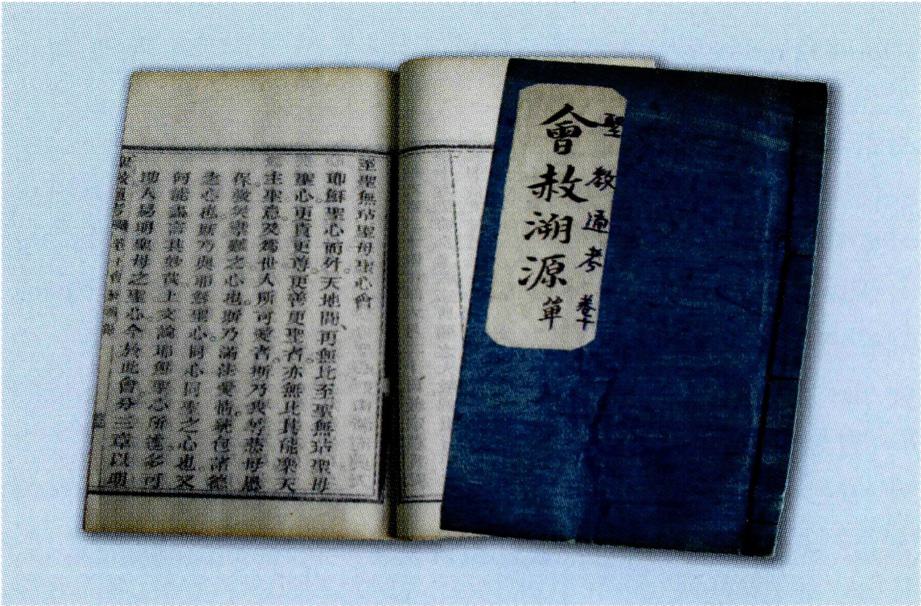 聖教通考 卷十
會赦溯源 單
至聖無玷聖母聖心會
耶穌聖心而外。天地間、再無比至聖無玷聖母
聖心更貴更尊更善更聖者。亦無比其能樂天
主聖意及爲世人所可愛者。斯乃我等慈母
之心也。斯乃滿注愛情統包諸德
之心也。斯乃與耶穌聖心同心同聖之心也。又
何能盡言其妙哉。上文論耶穌聖心所述多可
助人易明聖母之聖心。今於此會分三章以明
聖教通考 卷十會赦溯源